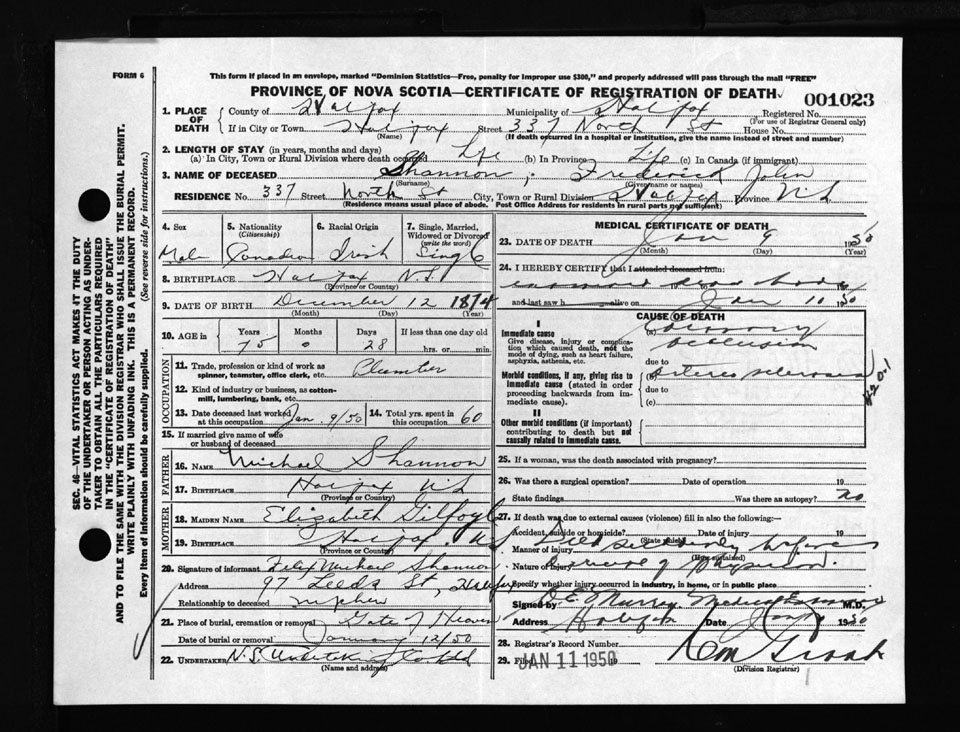 FORM 6
This form if placed in an envelope, marked "Dominion Statistics—Free, penalty for improper use $300," and properly addressed will pass through the mail "FREE"
PROVINCE OF NOVA SCOTIA—CERTIFICATE OF REGISTRATION OF DEATH
001023
1. PLACE OF DEATH
County of Halifax Municipality of Halifax Registered No.
(For use of Registrar General only)
If in City or Town Halifax Street 337 North St House No.
(Name) (If death occurred in a hospital or institution, give the name instead of street and number)
2. LENGTH OF STAY (in years, months and days)
(a) In City, Town or Rural Division where death occurred Life (b) In Province Life (c) In Canada (if immigrant)
3. NAME OF DECEASED Shannon, Frederick John
(Surname) (Given name or names)
RESIDENCE No. 337 Street North St City, Town or Rural Division Halifax Province N.S.
(Residence means usual place of abode. Post Office Address for residents in rural parts not sufficient)
4. Sex 5. Nationality (Citizenship) 6. Racial Origin 7. Single, Married, Widowed or Divorced (write the word)
Male Canadian Irish Single
8. BIRTHPLACE Halifax N.S.
(Province or Country)
9. DATE OF BIRTH December 12 1874
(Month) (Day) (Year)
10. AGE in Years Months Days If less than one day old
75 0 28 hrs. or min.
OCCUPATION
11. Trade, profession or kind of work as spinner, teamster, office clerk, etc. Plumber
12. Kind of industry or business, as cotton-mill, lumbering, bank, etc.
13. Date deceased last worked at this occupation Jan. 9/50 14. Total yrs. spent in this occupation 60
15. If married give name of wife or husband of deceased
FATHER
16. NAME Michael Shannon
17. BIRTHPLACE Halifax N.S.
(Province or Country)
MOTHER
18. MAIDEN NAME Elizabeth Gilfoyle
19. BIRTHPLACE Halifax N.S.
(Province or Country)
20. Signature of informant Felix Michael Shannon
Address 97 Leeds St, Halifax
Relationship to deceased nephew
21. Place of burial, cremation or removal Gate of Heaven
Date of burial or removal January 12/50
22. UNDERTAKER N.S. Undertaking Co Ltd
(Name and address)
MEDICAL CERTIFICATE OF DEATH
23. DATE OF DEATH Jan 9 1950
(Month) (Day) (Year)
24. I HEREBY CERTIFY that I attended deceased from:
examined dead body
and last saw h alive on Jan 10 1950
CAUSE OF DEATH
I
Immediate cause (a) Coronary occlusion
Give disease, injury or complication which caused death, not the mode of dying, such as heart failure, asphyxia, asthenia, etc.
due to
Morbid conditions, if any, giving rise to immediate cause (stated in order proceeding backwards from immediate cause).
(b) Arterio sclerosis
due to
(c)
420.1
II
Other morbid conditions (if important) contributing to death but not causally related to immediate cause.
25. If a woman, was the death associated with pregnancy?
26. Was there a surgical operation? Date of operation 19
State findings Was there an autopsy? no
27. If death was due to external causes (violence) fill in also the following:—
Accident, suicide or homicide? Date of injury 19
(State which)
Manner of injury Died suddenly before
(How sustained)
Nature of injury arrival of Physician.
Specify whether injury occurred in industry, in home, or in public place
Signed by O.E. Murray Medical Examiner M.D.
Address Halifax Date Jan 1950
28. Registrar's Record Number
29. Filed JAN 11 1950
(Division Registrar)
SEC. 46—VITAL STATISTICS ACT MAKES IT THE DUTY
OF THE UNDERTAKER OR PERSON ACTING AS UNDER-
TAKER TO OBTAIN ALL THE PARTICULARS REQUIRED
IN THE "CERTIFICATE OF REGISTRATION OF DEATH"
AND TO FILE THE SAME WITH THE DIVISION REGISTRAR WHO SHALL ISSUE THE BURIAL PERMIT.
WRITE PLAINLY WITH UNFADING INK. THIS IS A PERMANENT RECORD.
Every item of information should be carefully supplied. (See reverse side for instructions.)